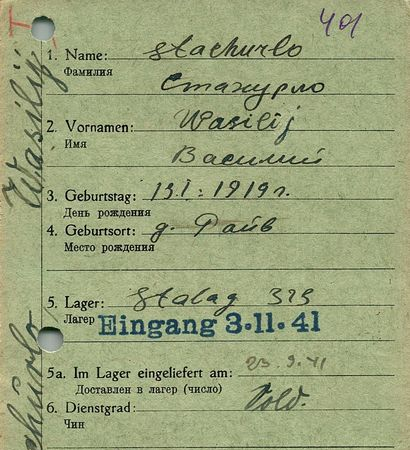 401
1. Name: Stachurlo
Фамилия
Стахурло
2. Vornamen: Wasilij
Имя
Василий
3. Geburtstag: 13 I. 1919 г.
День рождения
4. Geburtsort: д.
Место рождения
5. Lager: Stalag
Лагер
Eingang 3. 11. 41
5a. Im Lager eingeliefert am: 23. 9. 41
Доставлен в лагер (число)
6. Dienstgrad: Sold.
Чин
Wasilij